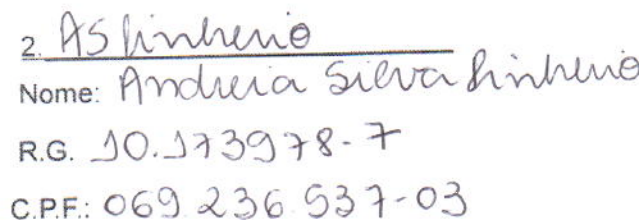 2. AS Pinheiro
Nome: Andreia Silva Pinheiro
R.G. 10.173978-7
C.P.F.: 069.236.537-03